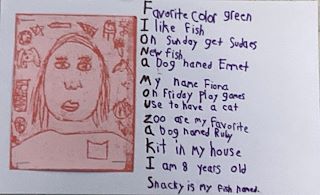 Favorite Color green
I like fish
On Sunday get Sudaes
New fish
a Dog named Emet
My name Fiona
on Friday play games
Use to have a cat
Zoo are my Favorite
a bog named Ruby
Kit in my house
I am 8 years old
Snacky is my fish named.